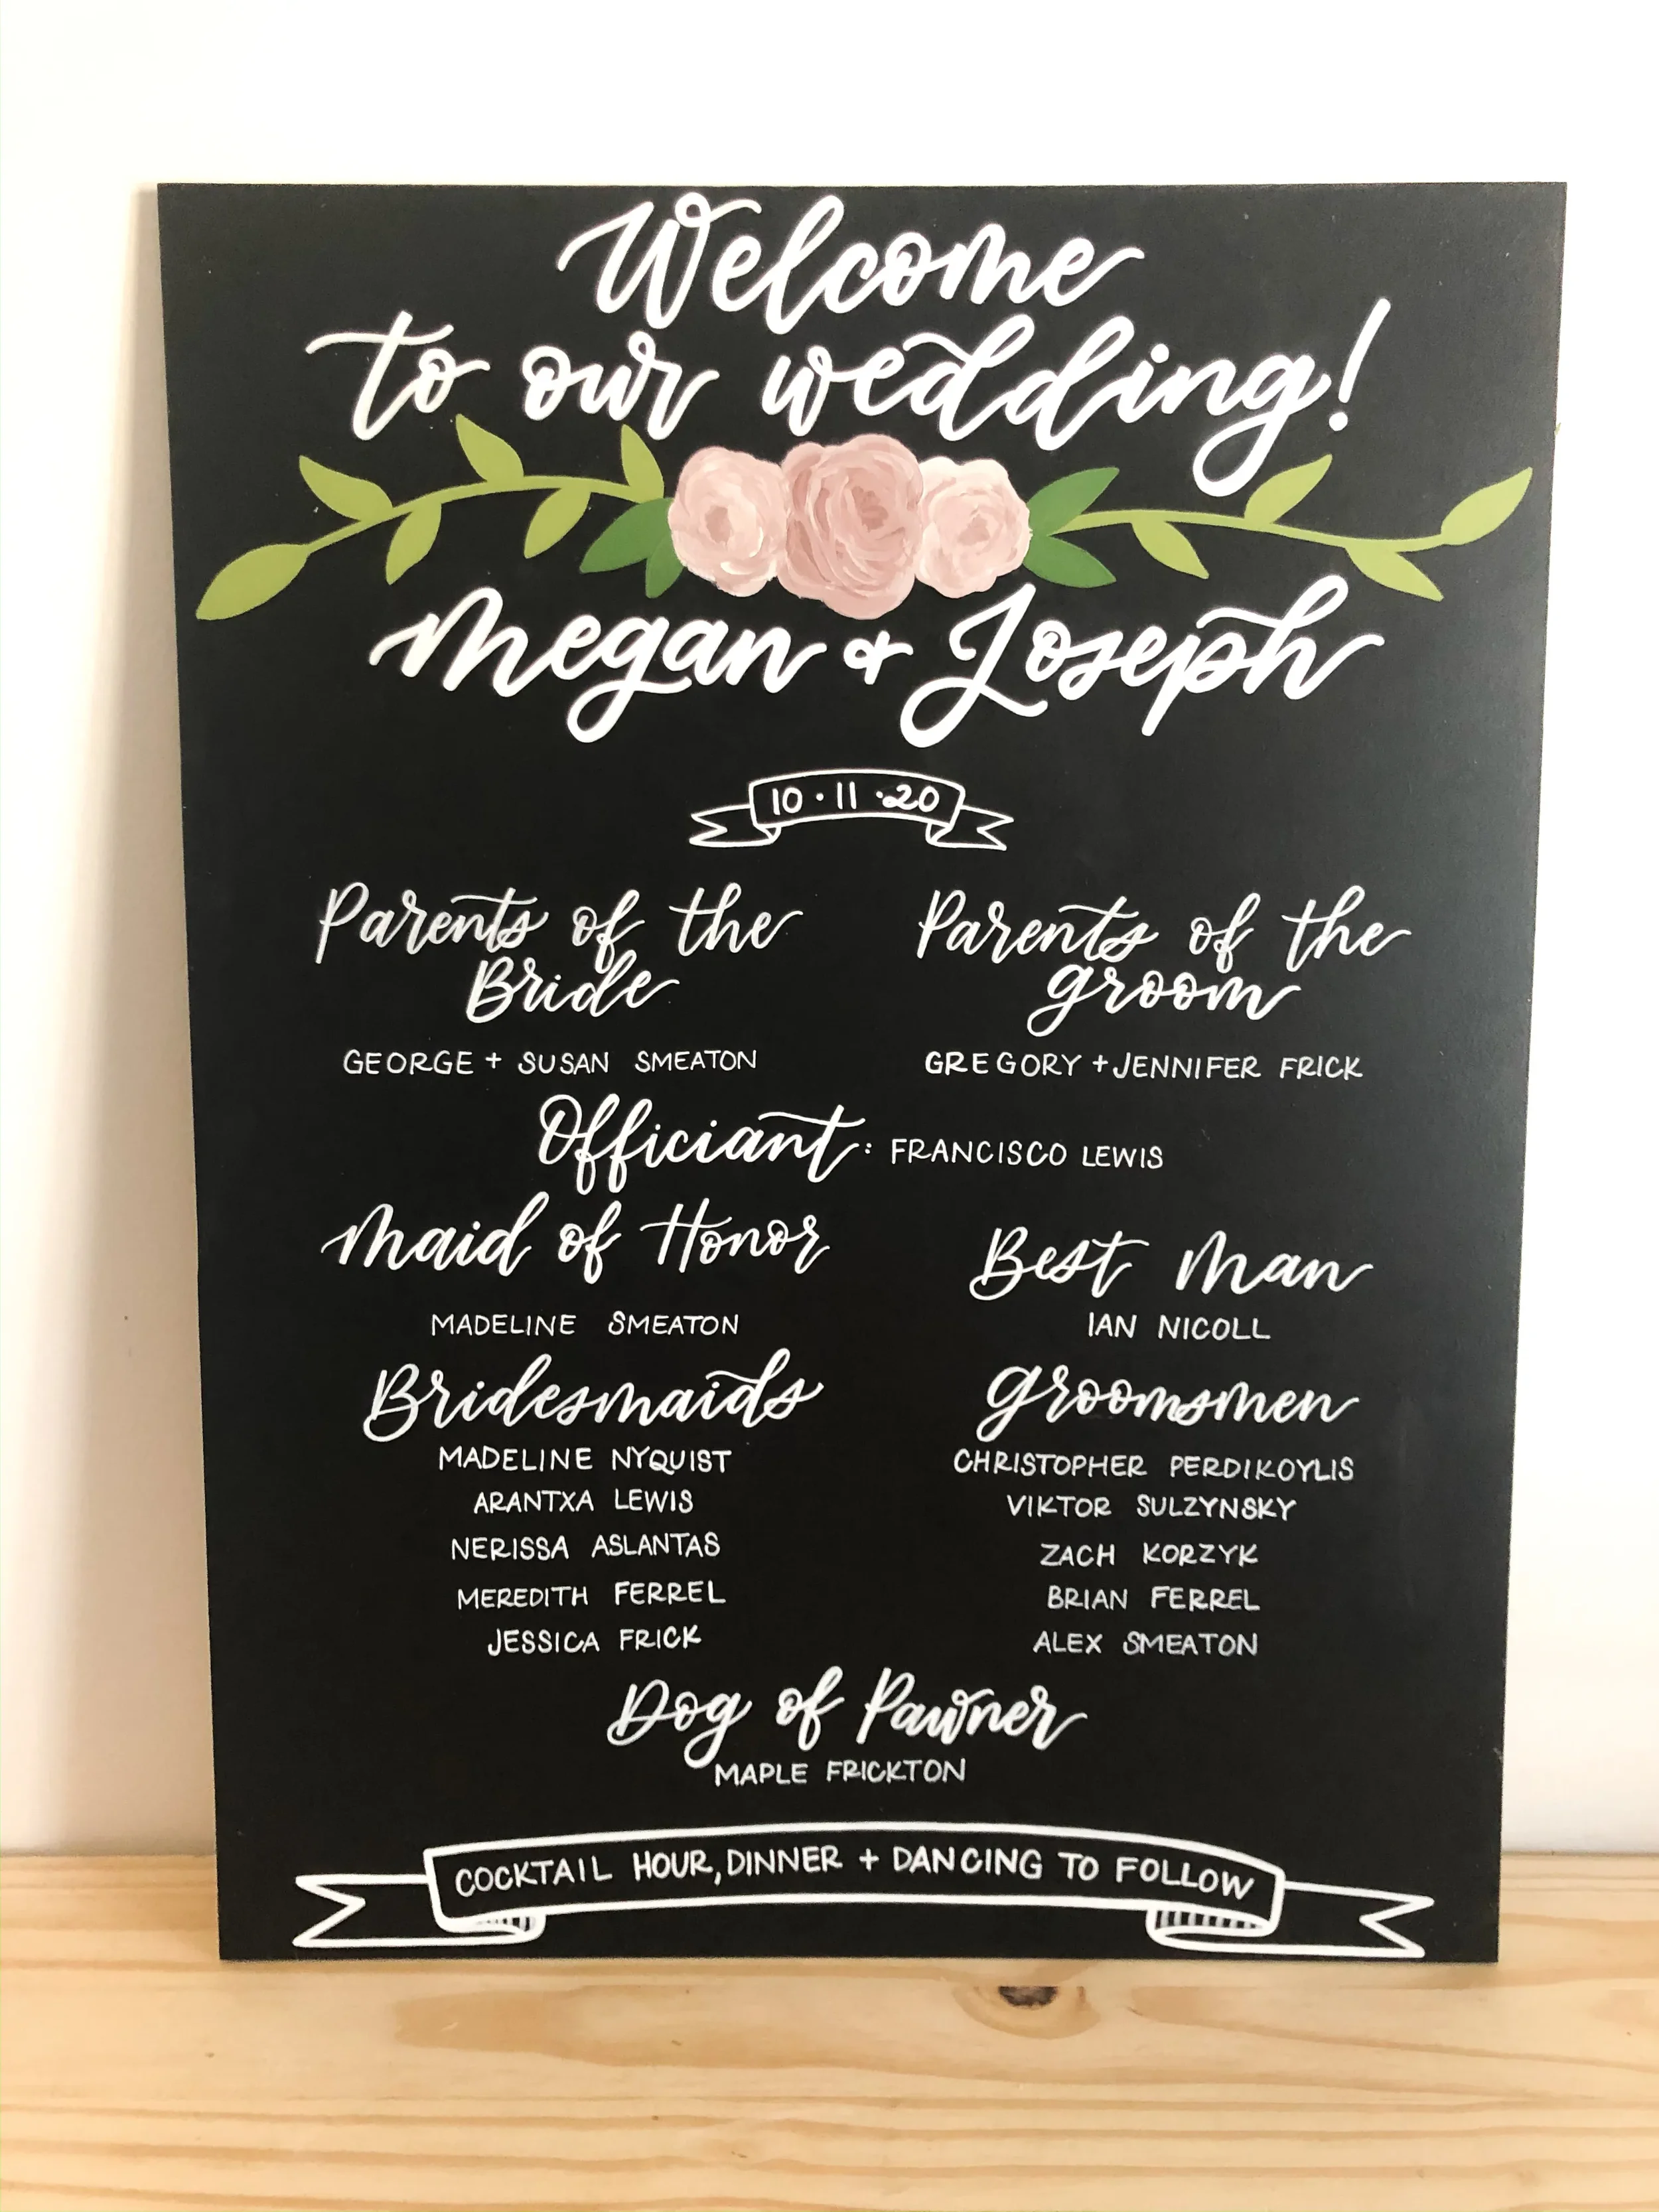 Welcome
to our wedding!
Megan & Joseph
10 · 11 · 20
Parents of the
Bride
GEORGE + SUSAN SMEATON
Parents of the
groom
GREGORY + JENNIFER FRICK
Officiant: FRANCISCO LEWIS
Maid of Honor
MADELINE SMEATON
Best Man
IAN NICOLL
Bridesmaids
MADELINE NYQUIST
ARANTXA LEWIS
NERISSA ASLANTAS
MEREDITH FERREL
JESSICA FRICK
groomsmen
CHRISTOPHER PERDIKOYLIS
VIKTOR SULZYNSKY
ZACH KORZYK
BRIAN FERREL
ALEX SMEATON
Dog of Pawner
MAPLE FRICKTON
COCKTAIL HOUR, DINNER + DANCING TO FOLLOW